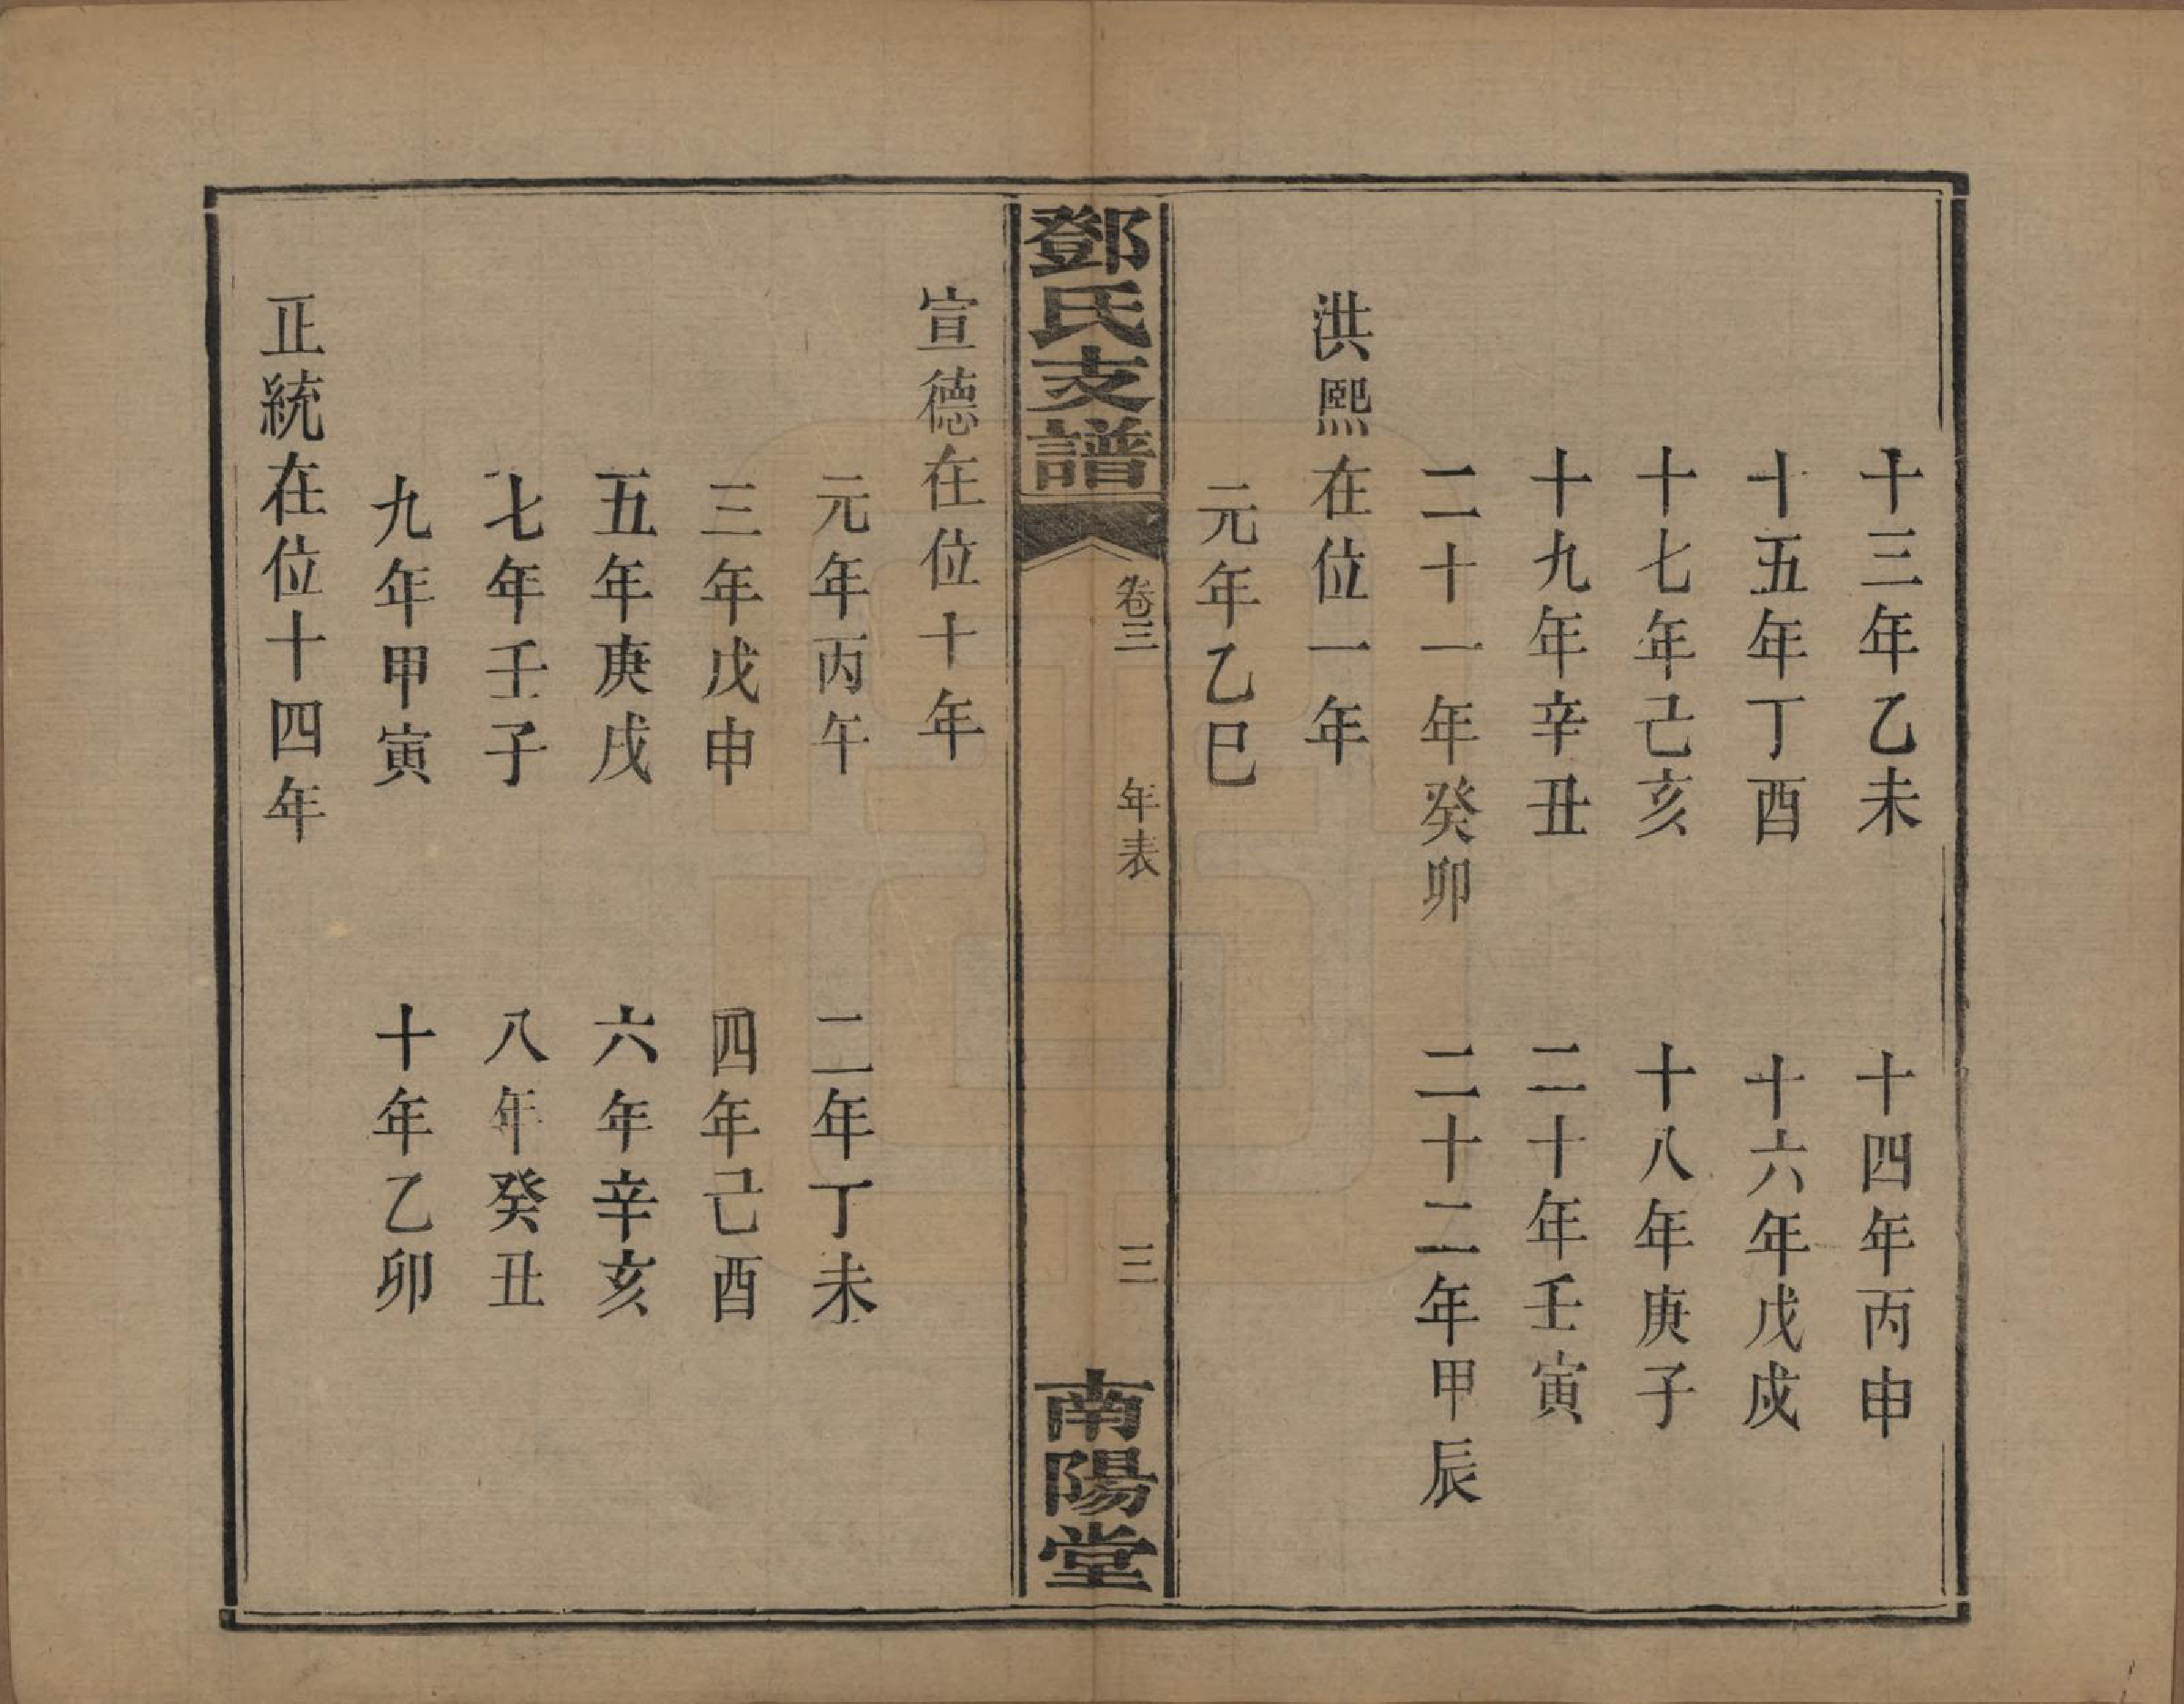 十三年乙未　十四年丙申
十五年丁酉　十六年戊戌
十七年己亥　十八年庚子
十九年辛丑　二十年壬寅
二十一年癸卯　二十二年甲辰
洪熙在位一年
元年乙巳
鄧氏支譜　卷三　年表　三　南陽堂
宣德在位十年
元年丙午　二年丁未
三年戊申　四年己酉
五年庚戌　六年辛亥
七年壬子　八年癸丑
九年甲寅　十年乙卯
正統在位十四年